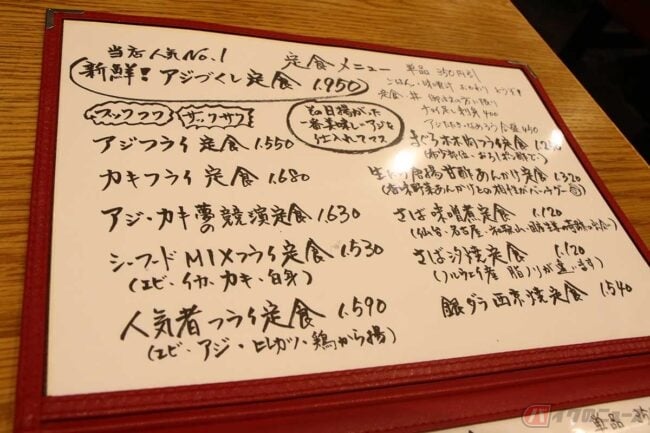 当店人気No.1
新鮮！アジづくし定食 1.950
定食メニュー
単品 350円引
ごはん・味噌汁 おかわり
フックフワ サックサク
その日揚がった
一番美味しいアジを
仕入れてマス
アジフライ定食 1.550
カキフライ定食 1.680
アジ・カキ夢の競演定食 1.630
シーフードMIXフライ定食 1.530
(エビ・イカ・カキ・白身)
人気者フライ定食 1.590
(エビ・アジ・ヒレカツ・鶏から揚)
まぐろホホ肉フライ定食
(希少部位・おろしポン酢で)
唐揚甘酢あんかけ定食 1.320
(香味野菜あんかけとの相性がバツグン
さば味噌煮定食 1.120
さば汐焼定食 1.120
(ノルウェイ産 脂ノリが違います)
銀ダラ西京焼定食 1.540
単品
バイクのニュース